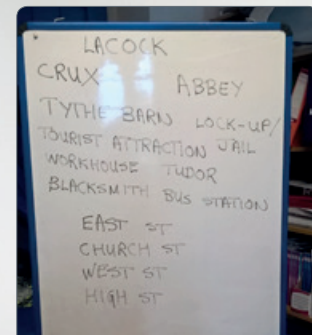 LACOCK
CRUX ABBEY
TYTHE BARN LOCK-UP/
TOURIST ATTRACTION JAIL
WORKHOUSE TUDOR
BLACKSMITH BUS STATION
EAST ST
CHURCH ST
WEST ST
HIGH ST